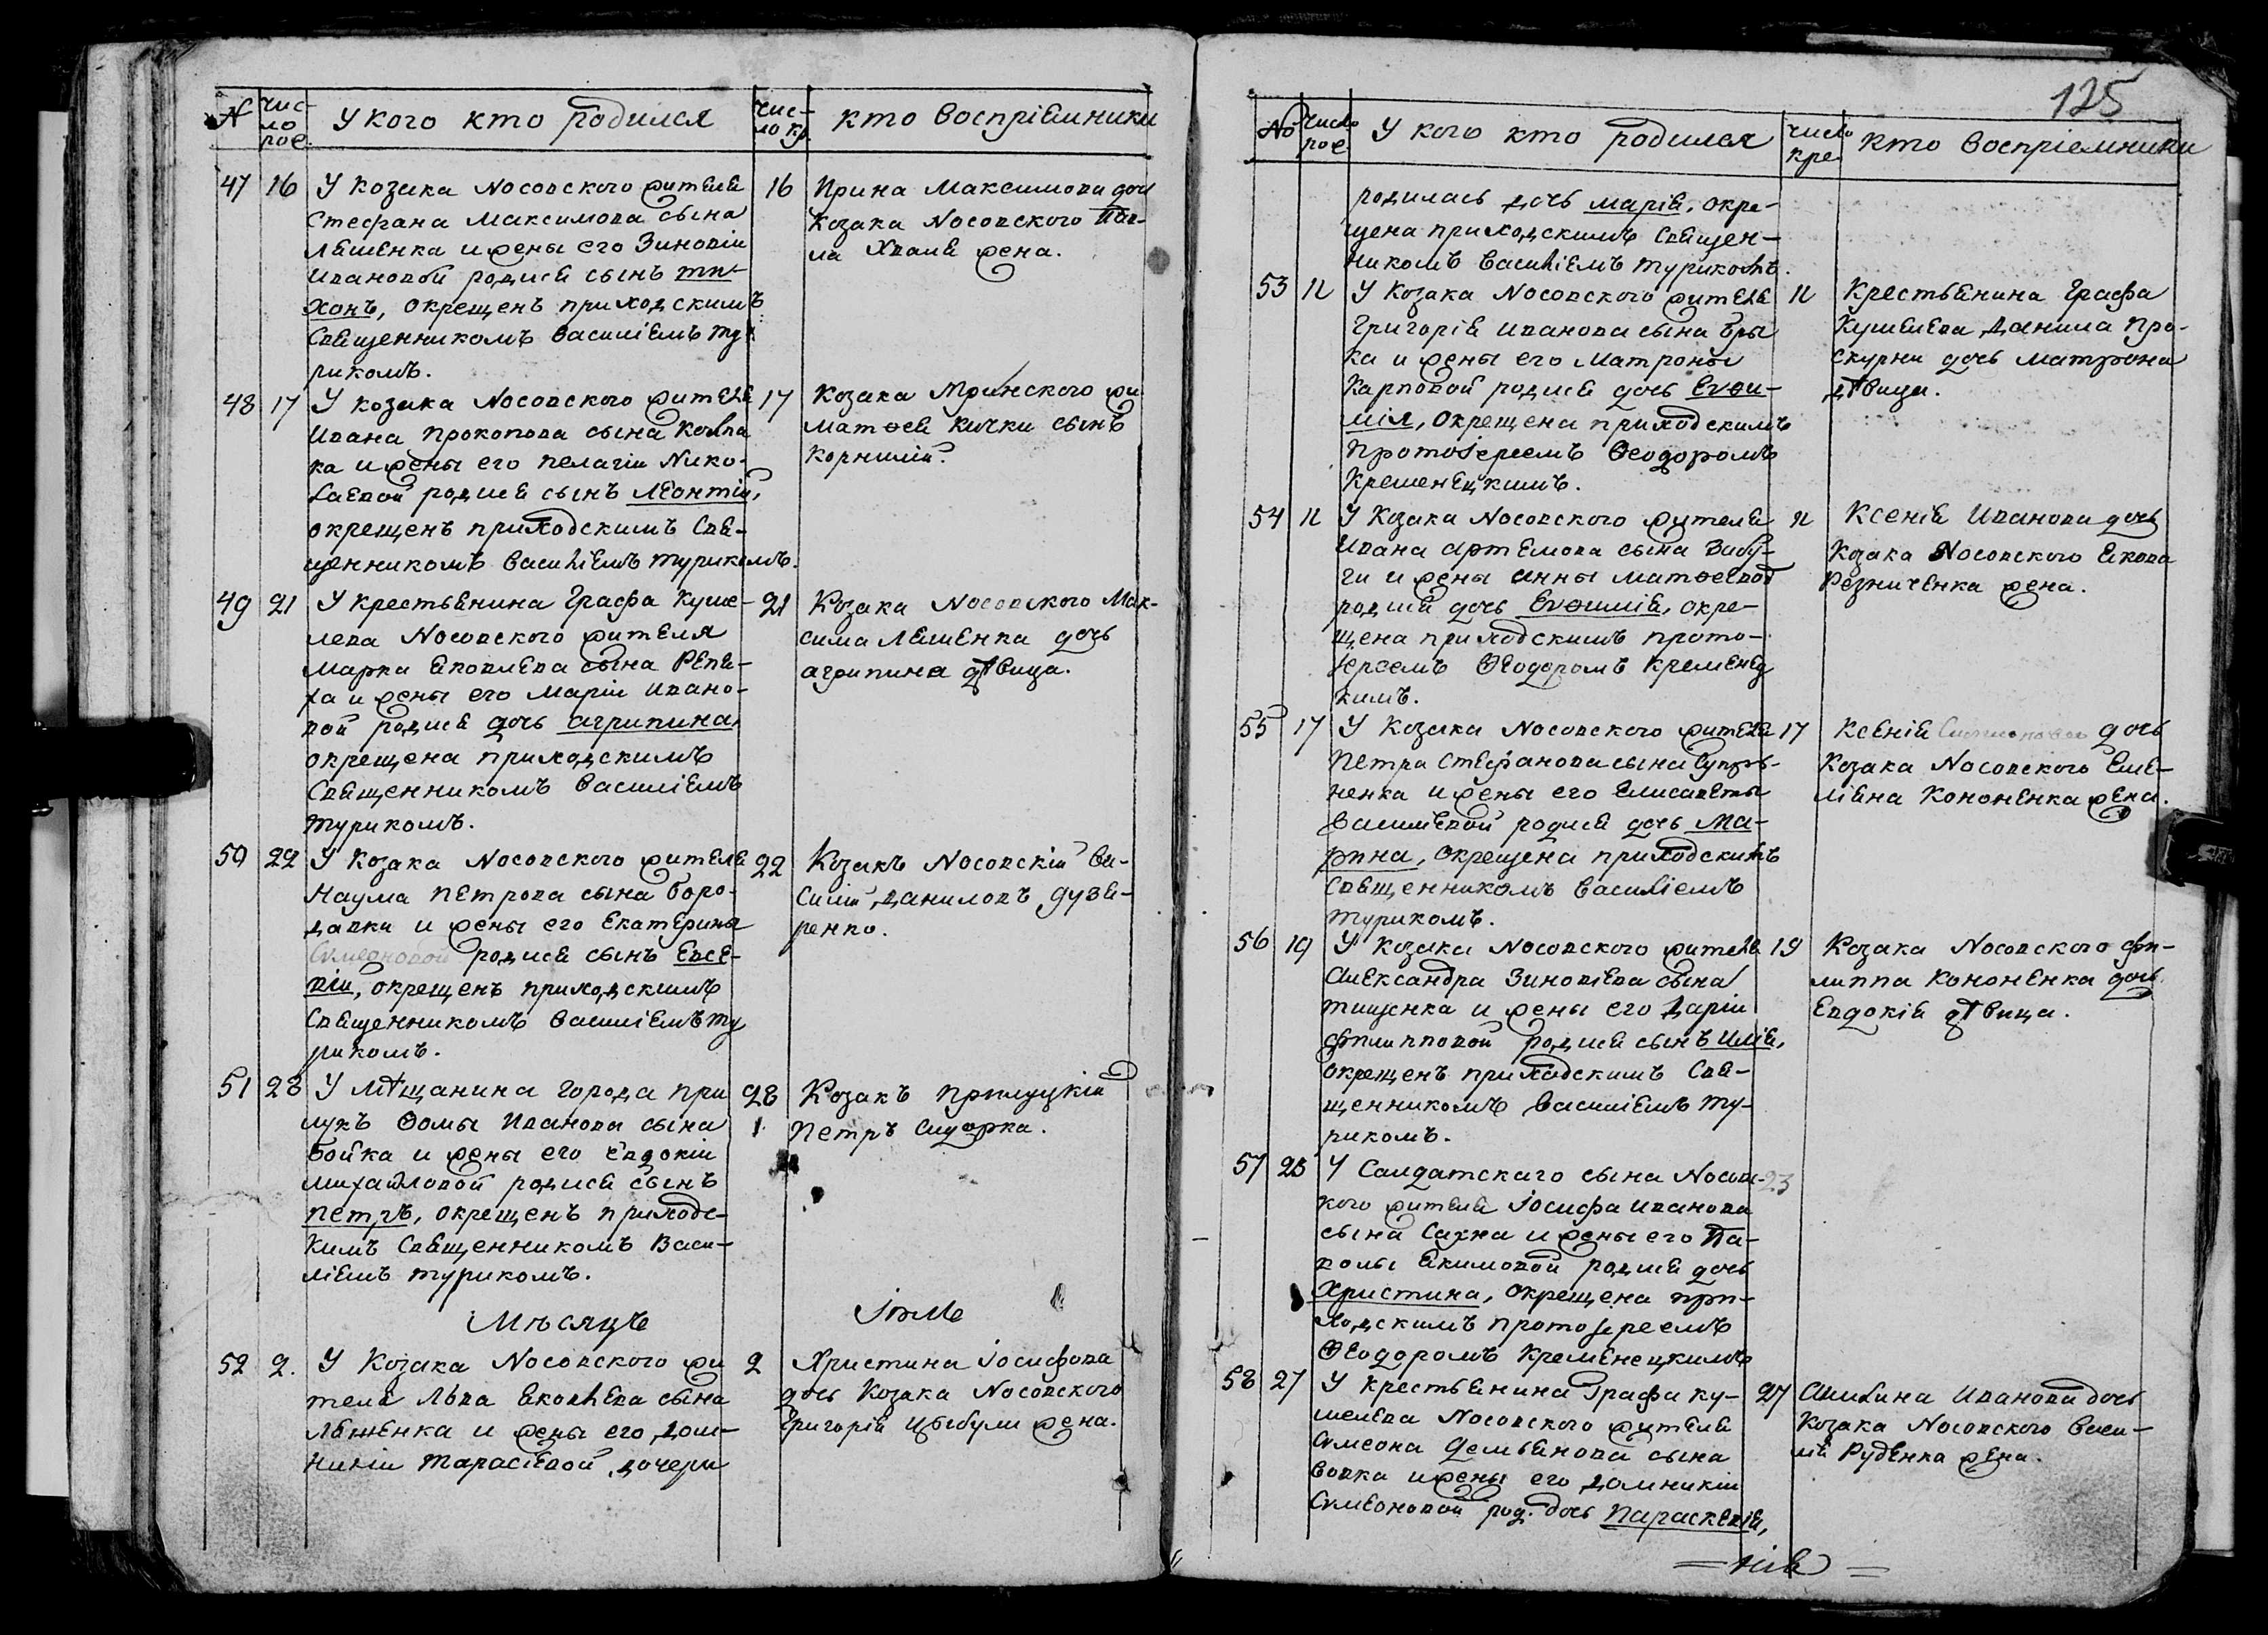 125
№ чис-
ло
рож.
У кого кто родился
чис-
ло кр.
кто воспріемники
47 16 У Козака Носовского жителя
Стефана Максимова сына
Ляшенка и жены его Зиновіи
Ивановой родися сынъ Ти-
хонъ, окрещенъ приходскимъ
Священникомъ Василіемъ Ту-
рикомъ.
16 Ирина Максимова дочь
Козака Носовского Пав-
ла Хваля жена.
48 17 У Козака Носовского жителя
Ивана Прокопова сына Колпа
ка и жены его Пелагіи Нико-
лаевой родися сынъ Леонтій,
окрещенъ приходскимъ Свя-
щенникомъ Василіемъ Турикомъ.
17 Козака Мринского жи
Матѳея Кички сынъ
Корнилій.
49 21 У крестьянина Графа Куше-
лева Носовского жителя
Марка Яковлева сына Репя-
ха и жены его Маріи Ивано-
вой родися дочь Агрипина,
окрещена приходскимъ
Священникомъ Василіемъ
Турикомъ.
21 Козака Носовского Мак-
сима Ляшенка дочь
Агрипина дѣвица.
50 22 У Козака Носовского жителя
Наума Петрова сына Боро-
давки и жены его Екатерины
Симеоновой родися сынъ Евсе-
вій, окрещенъ приходскимъ
Священникомъ Василіемъ Ту
рикомъ.
22 Козакъ Носовскій Ва-
силій Даниловъ
ренко.
51 28 У мѣщанина города При
лукъ Ѳомы Иванова сына
Бойка и жены его Евдокіи
Михайловой родися сынъ
Петръ, окрещенъ приходс-
кимъ Священникомъ Васи-
ліемъ Турикомъ.
28 Козакъ Прилуцкій
1. Петръ Сидорка.
Мѣсяцъ Іюль
52 2. У Козака Носовского жи
теля Льва Яковлева сына
Ляшенка и жены его Дом-
никіи Тарасіевой дочери
2 Христина Іосифова
дочь Козака Носовского
Григорія Цыбули жена.
№ число
рож.
У кого кто родился
число
кре.
кто воспріемники
родилась дочь Марія, окре-
щена приходскимъ Священ-
никомъ Василіемъ Турикомъ.
53 12 У Козака Носовского жителя
Григорія Иванова сына Бры
ка и жены его Матроны
Карповой родися дочь Евѳи-
мія, окрещена приходскимъ
Протоіереемъ Ѳеодоромъ
Кременецкимъ.
12 Крестьянина Графа
Кушелева Данила Про-
скурни дочь Матрона
дѣвица.
54 12 У Козака Носовского жителя
Ивана Артемова сына Забу-
ги и жены Анны Матѳеевой
родися дочь Евѳимія, окре-
щена приходскимъ прото-
іереемъ Ѳеодоромъ Кременец
кимъ.
12 Ксенія Иванова дочь
Козака Носовского Якова
Резниченка жена.
55 17 У Козака Носовского жителя
Петра Стефанова сына Супру-
ненка и жены его Елисаветы
Василіевой родися дочь Ма-
рина, окрещена приходскимъ
Священникомъ Василіемъ
Турикомъ.
17 Ксенія дочь
Козака Носовского Еме-
ліяна Кононенка жена.
56 19 У Козака Носовского жителя
Александра Зиновіева сына
Тищенка и жены его Даріи
Филипповой родися сынъ Илія,
окрещенъ приходскимъ Свя-
щенникомъ Василіемъ Ту-
рикомъ.
19 Козака Носовского Фи-
липпа Кононенка дочь
Евдокія дѣвица.
57 23 У Салдатскаго сына Носовс-
кого жителя Іосифа Иванова
сына Сахна и жены его Па-
волы Екимовой родися дочь
Христина, окрещена при-
ходскимъ протоіереемъ
Ѳеодоромъ Кременецкимъ
23
58 27 У крестьянина Графа Ку-
шелева Носовского жителя
Симеона Демьянова сына
Вовка и жены его Домникіи
Симеоновой род. дочь Параскевія,
27 Акилина Иванова дочь
Козака Носовского Васи-
лія Руденка жена.